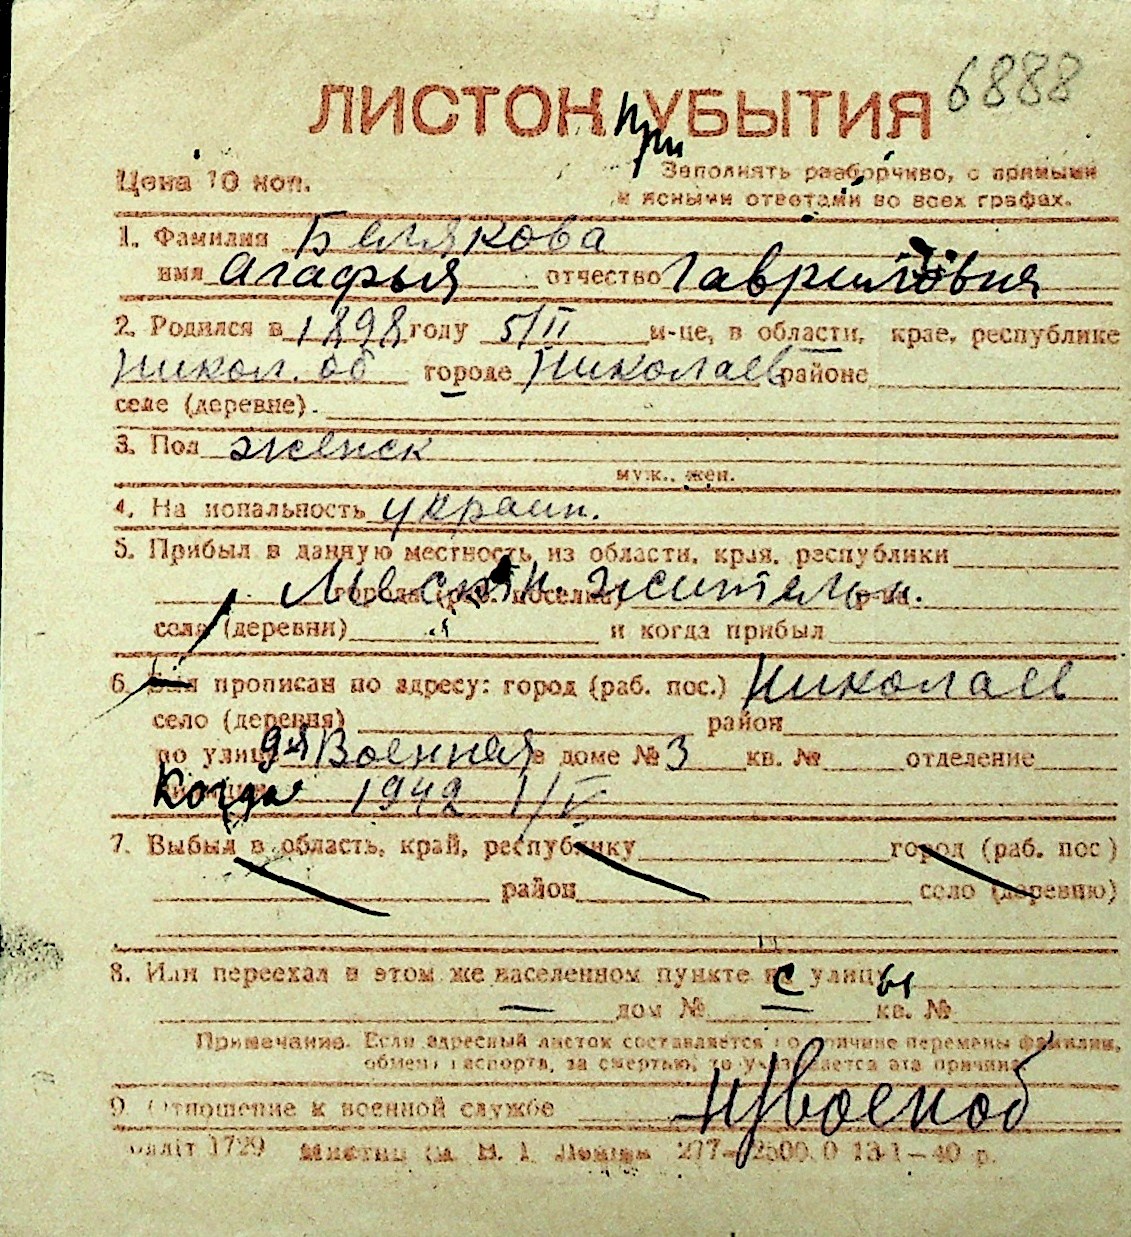 6888
ЛИСТОК при УБЫТИЯ
Цена 10 коп.
Заполнять разборчиво, с прямыми
и ясными ответами во всех графах.
1. Фамилия Белякова
имя Агафья отчество Гавриловна
2. Родился в 1898 году 5/II м-це, в области, крае, республике
Никол. об городе Николаев районе
селе (деревне).
3. Пол женск
муж., жен.
4. На иональность украин.
5. Прибыл в данную местность из области, края, республики
Местн. жительн.
города (раб. поселка)
села (деревни) и когда прибыл
6. Был прописан по адресу: город (раб. пос.) Николаев
село (деревня) район
по улице 9я Военная в доме № 3 кв. № отделение
Когда 1942 1/V
7. Выбыл в область, край, республику город (раб. пос)
район село (деревню)
8. Или переехал в этом же населенном пункте с улицы
— дом № — кв. №
Примечание. Если адресный листок составляется по причине перемены фамилии,
обмена паспорта, за смертью, то указывается эта причина
9. Отношение к военной службе н/военоб
1729 277—2500. 13-1—40 р.